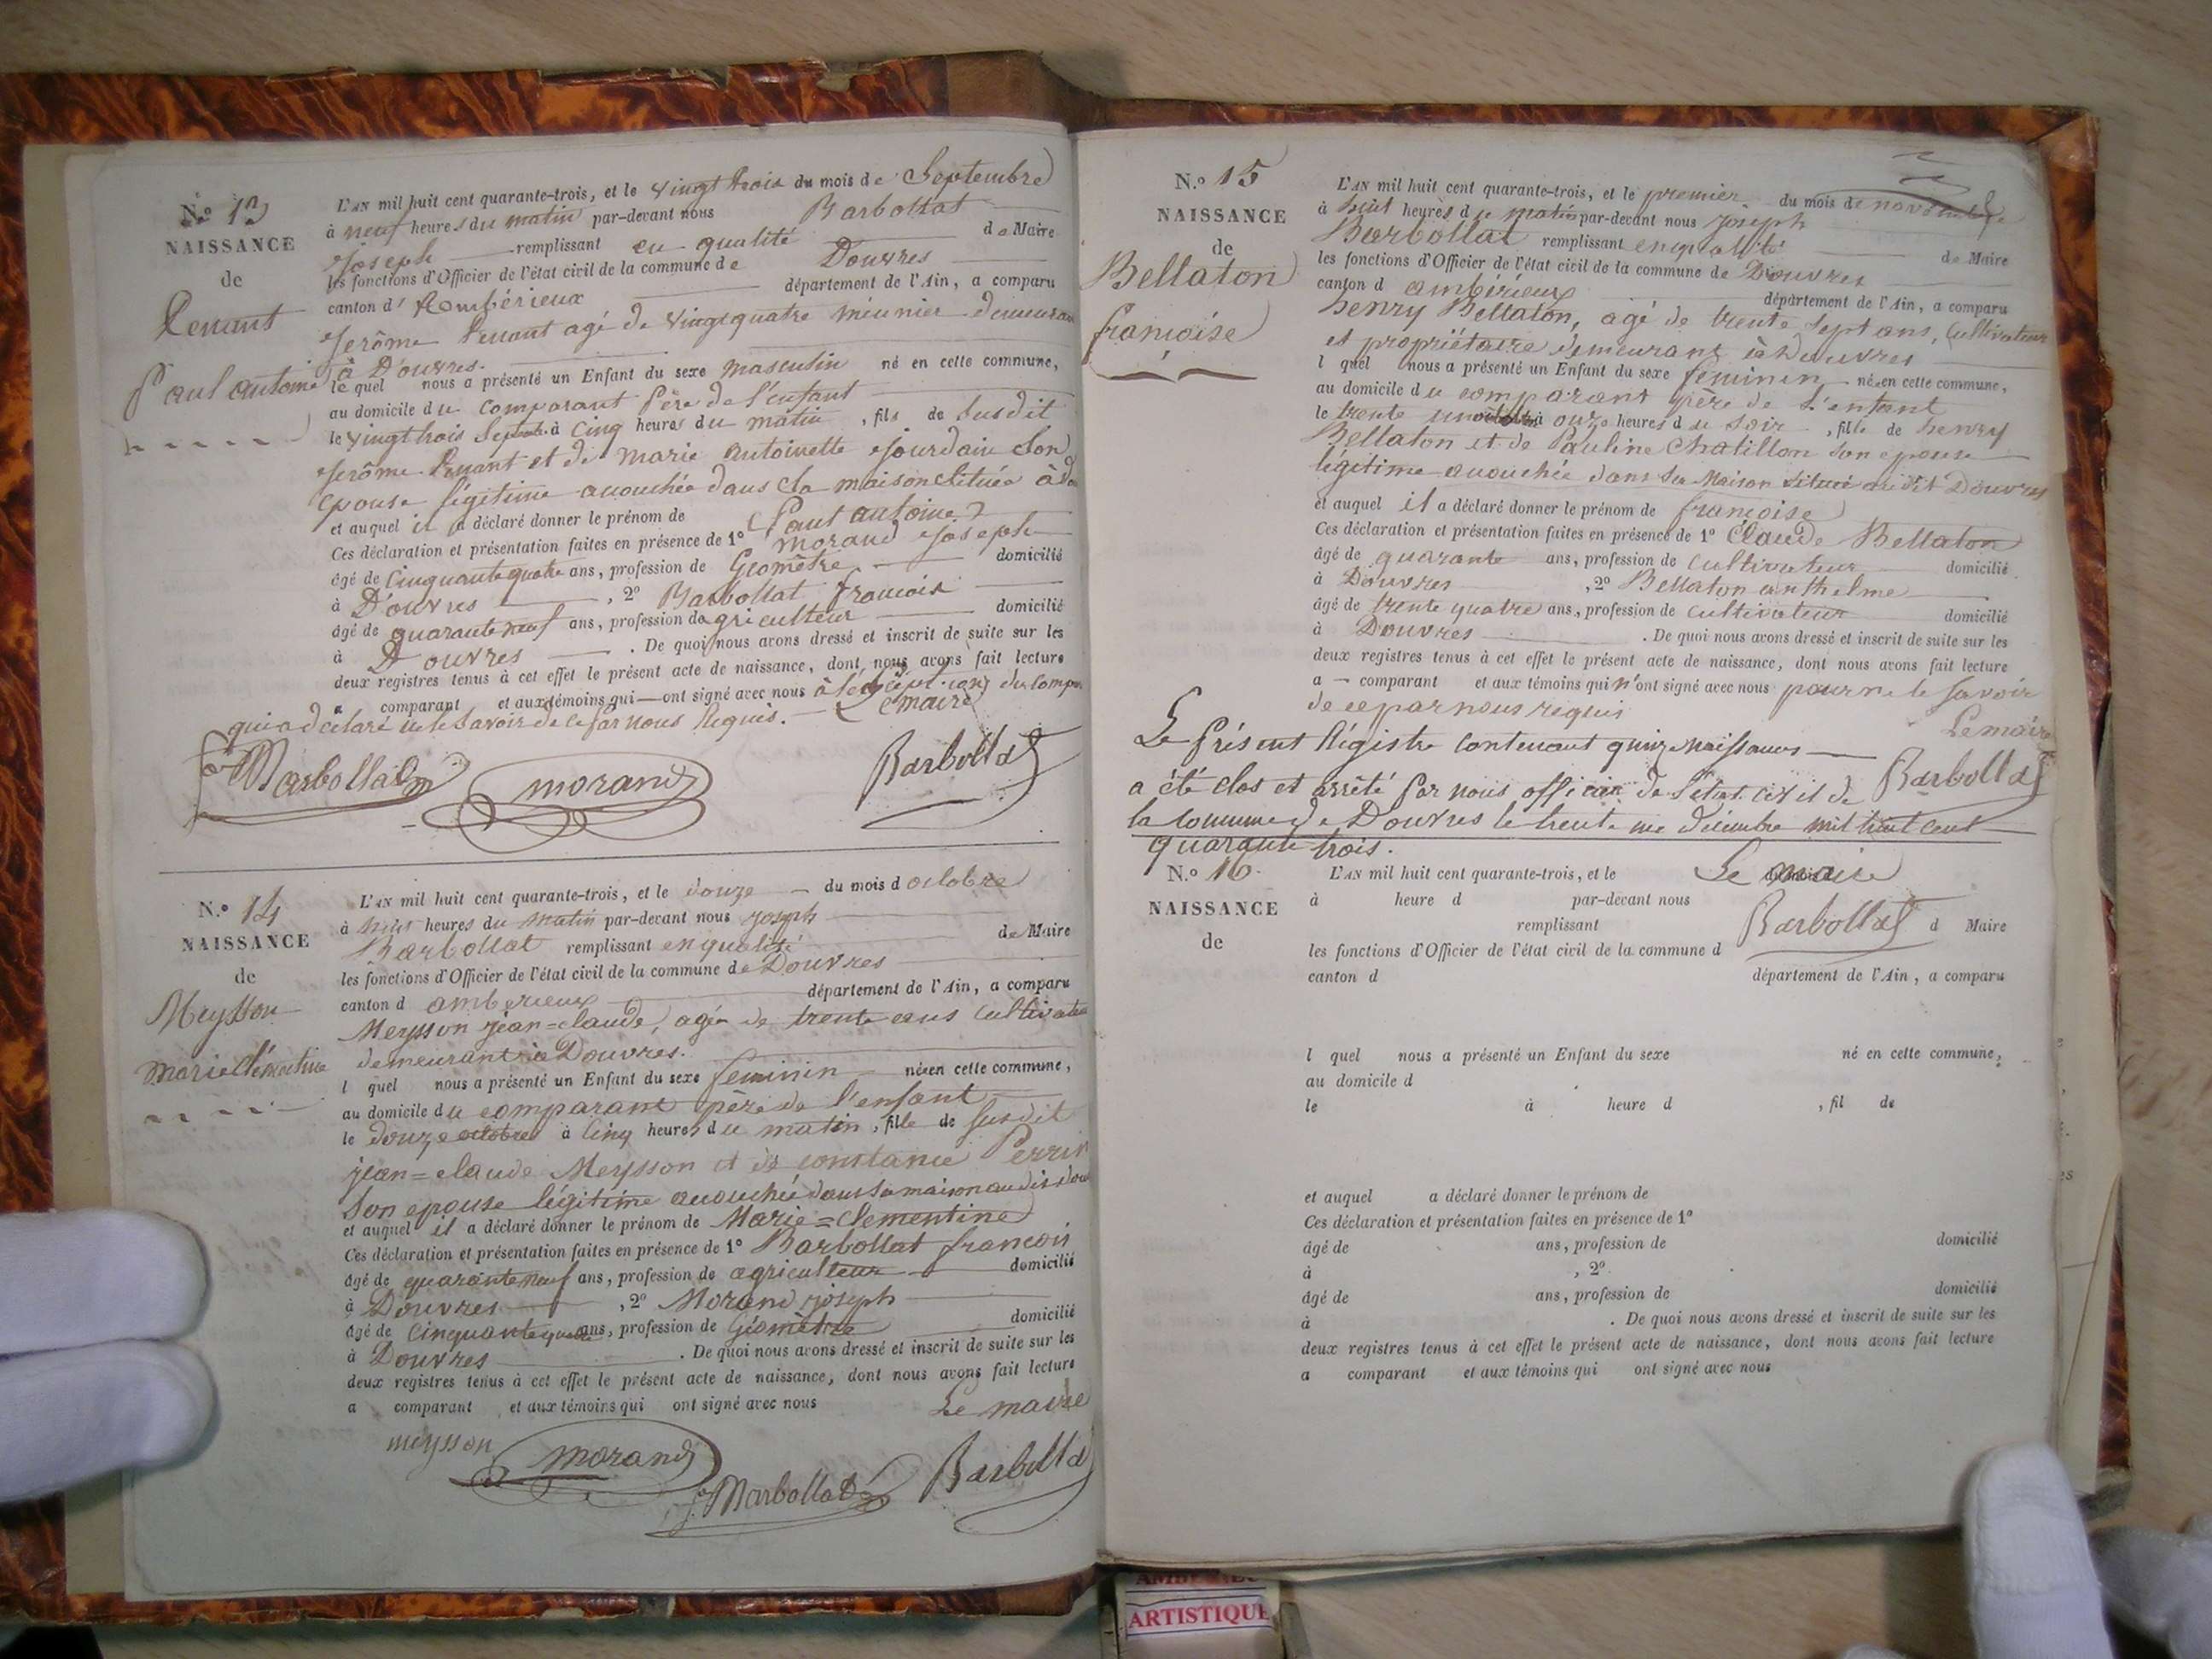 N.º 13
NAISSANCE
de
Paul antoine
L'AN mil huit cent quarante-trois, et le vingt trois du mois de Septembre
à neuf heures du matin par-devant nous Barbollat
Joseph remplissant en qualité de Maire
les fonctions d'Officier de l'état civil de la commune de Douvres
canton d' Ambérieux département de l'Ain, a comparu
Jerôme agé de vingt quatre meunier demeurant
à Douvres.
le quel nous a présenté un Enfant du sexe masculin né en cette commune,
au domicile du comparant Père de l'enfant
le vingt trois Septbre à cinq heures du matin, fils de Susdit
Jerôme et de marie antoinette Jourdain Son
epouse légitime acouchée dans Sa maison Située à
et auquel il a déclaré donner le prénom de Paul antoine
Ces déclaration et présentation faites en présence de 1º Morand Joseph
âgé de cinquante quatre ans, profession de Géomètre domicilié
à Douvres, 2º Barbollat francois
âgé de quarante neuf ans, profession de agriculteur domicilié
à Douvres. De quoi nous avons dressé et inscrit de suite sur les
deux registres tenus à cet effet le présent acte de naissance, dont nous avons fait lecture
a comparant et aux témoins qui ont signé avec nous à l'éxception du
qui a déclaré ne le Savoir de ce par nous Requis. Le maire
Barbollat morand Barbollat
N.º 14
NAISSANCE
de
Meysson
marie Clémentine
L'AN mil huit cent quarante-trois, et le douze du mois d octobre
à huit heures du matin par-devant nous joseph
Barbollat remplissant en qualité de Maire
les fonctions d'Officier de l'état civil de la commune de Douvres
canton d amberieux département de l'Ain, a comparu
Meysson jean=claude, agé de trente ans Cultivateur
demeurant à Douvres.
l quel nous a présenté un Enfant du sexe feminin née en cette commune,
au domicile du comparant père de l'enfant
le douze octobre à cinq heures du matin, fille de susdit
jean=claude Meysson et de constance Perrin
Son epouse légitime acouchée dans sa maison au dit
et auquel il a déclaré donner le prénom de Marie=Clementine
Ces déclaration et présentation faites en présence de 1º Barbollat francois
âgé de quarante neuf ans, profession de agriculteur domicilié
à Douvres, 2º Morand joseph
âgé de cinquante quatre ans, profession de Géomètre domicilié
à Douvres. De quoi nous avons dressé et inscrit de suite sur les
deux registres tenus à cet effet le présent acte de naissance, dont nous avons fait lecture
a comparant et aux témoins qui ont signé avec nous Le maire
meysson morand Barbollat Barbollat
N.º 15
NAISSANCE
de
Bellaton
françoise
L'AN mil huit cent quarante-trois, et le premier du mois de novembre
à huit heures du matin par-devant nous Joseph
Barbollat remplissant en qualité de Maire
les fonctions d'Officier de l'état civil de la commune de Douvres
canton d ambérieux département de l'Ain, a comparu
henry Bellaton, agé de trente sept ans, Cultivateur
et propriétaire demeurant à Douvres
l quel nous a présenté un Enfant du sexe feminin née en cette commune,
au domicile du comparant père de l'enfant
le trente un à onze heures du soir, fille de henry
Bellaton et de Pauline Chatillon son epouse
légitime acouchée dans Sa Maison située au dit Douvres
et auquel il a déclaré donner le prénom de françoise
Ces déclaration et présentation faites en présence de 1º Claude Bellaton
âgé de quarante ans, profession de cultivateur domicilié
à Douvres, 2º Bellaton anthelme
âgé de trente quatre ans, profession de cultivateur domicilié
à Douvres. De quoi nous avons dressé et inscrit de suite sur les
deux registres tenus à cet effet le présent acte de naissance, dont nous avons fait lecture
a comparant et aux témoins qui n'ont signé avec nous pour ne le savoir
de ce par nous requis
Le maire
Le Présent Régistre contenant quinze naissances
a été clos et arrêté par nous officier de l'état civil de Barbollat
la commune de Douvres le trente un décembre mil huit cent
quarante trois.
N.º 16
NAISSANCE
de
L'AN mil huit cent quarante-trois, et le Le maire
à heure d par-devant nous
remplissant Barbollat d Maire
les fonctions d'Officier de l'état civil de la commune d
canton d département de l'Ain, a comparu
l quel nous a présenté un Enfant du sexe né en cette commune,
au domicile d
le à heure d , fil de
et auquel a déclaré donner le prénom de
Ces déclaration et présentation faites en présence de 1º
âgé de ans, profession de domicilié
à , 2º
âgé de ans, profession de domicilié
à . De quoi nous avons dressé et inscrit de suite sur les
deux registres tenus à cet effet le présent acte de naissance, dont nous avons fait lecture
a comparant et aux témoins qui ont signé avec nous
ARTISTIQUE